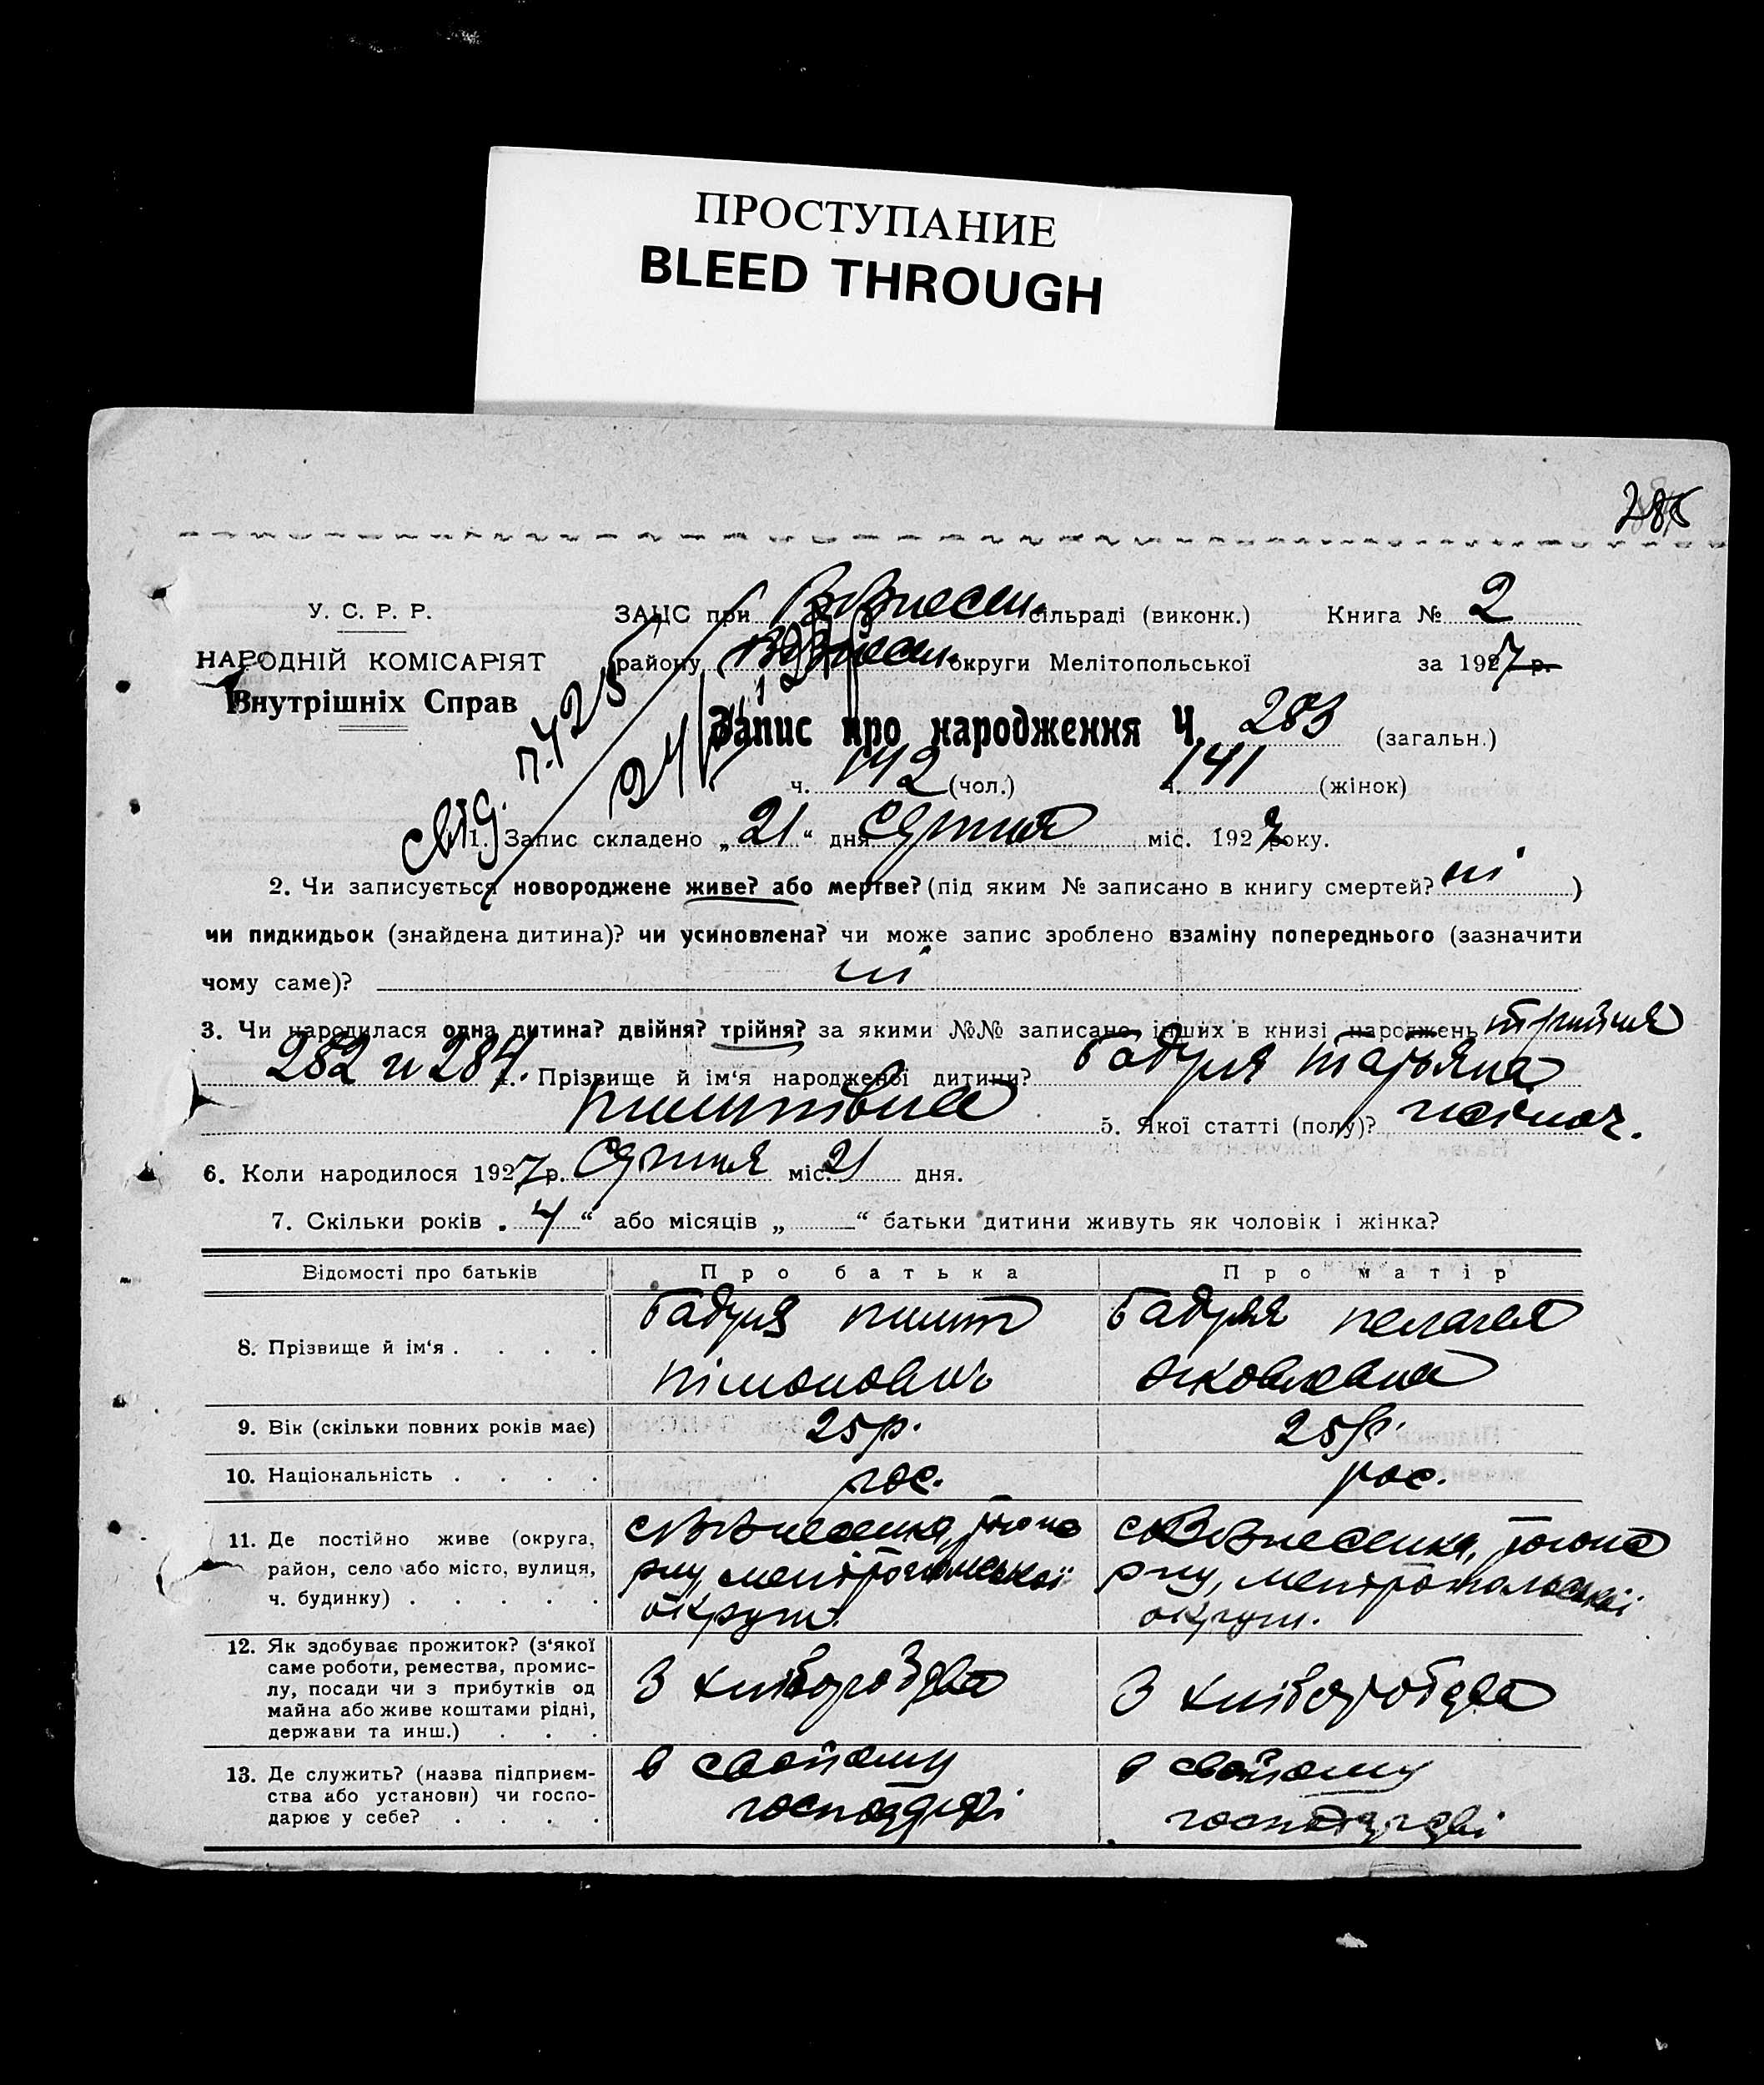 ПРОСТУПАНИЕ
BLEED THROUGH
У. С. Р. Р.
НАРОДНІЙ КОМІСАРІЯТ
Внутрішніх Справ
ЗАЦС при Вознесен. сільраді (виконк.) Книга № 2
району Вознесен. округи Мелітопольської за 1927 р.
Запис про народження Ч. 283 (загальн.)
ч. 142 (чол.) ч. 141 (жінок)
1. Запис складено „21“ дня серпня міс. 1927 року.
2. Чи записується новороджене живе? або мертве? (під яким № записано в книгу смертей? ні )
чи пидкидьок (знайдена дитина)? чи усиновлена? чи може запис зроблено взаміну попереднього (зазначити
чому саме)? ні
3. Чи народилася одна дитина? двійня? трійня? за якими №№ записано інших в книзі народжень трийня
282 и 284. 4. Прізвище й ім‘я народженої дитини? Бадуля Татьяна
5. Якої статті (полу)? жіноч.
6. Коли народилося 1927 р. серпня міс. 21 дня.
7. Скільки років „4“ або місяців „ “ батьки дитини живуть як чоловік і жінка?
Відомості про батьків Про батька Про матір
8. Прізвище й ім‘я . . . . Бадуля Бадуля Пелагея
Яковлевна
9. Вік (скільки повних років має) 25 р. 25 р.
10. Національність . . . . рос. рос.
11. Де постійно живе (округа, с. Вознесенка, того с. Вознесенка, того
район, село або місто, вулиця, р-ну, Мелітопольської р-ну, Мелітопольської
ч. будинку) . . . . . округи. округи.
12. Як здобуває прожиток? (з‘якої
саме роботи, ремества, промис-
лу, посади чи з прибутків од З хліборобства З хліборобства
майна або живе коштами рідні,
держави та инш.) . . .
13. Де служить? (назва підприєм- в свойому в свойому
ства або установи) чи госпо-
дарює у себе? . . . . господарстві господарстві